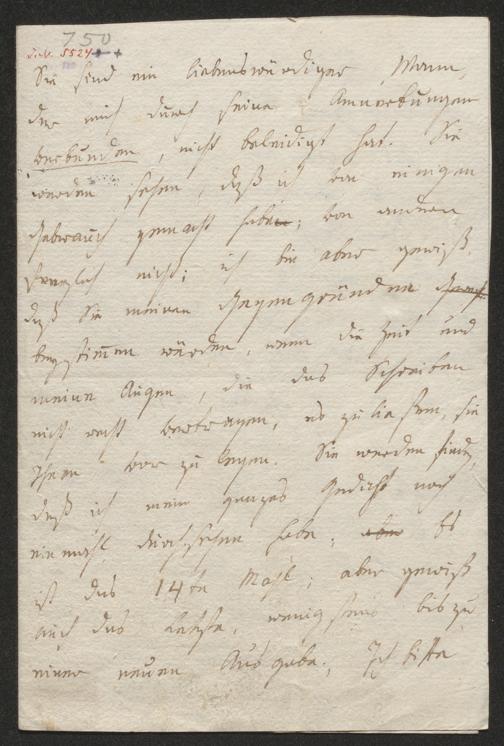 750
J.-N. 5524
Sie sind ein liebenswürdiger Mann,
der mich durch seine Anmerkungen
verbunden, nicht beleidigt hat. Sie
werden sehen, daß ich von einigen
Gebrauch gemacht habe; von andern
freylich nicht; ich bin aber gewiß,
daß Sie meinen Gegengründen
beystimmen würden, wenn die Zeit und
meine Augen, die das Schreiben
nicht recht vertragen, es zuließen, sie
Ihnen vor zu legen. Sie werden finden,
daß ich mein ganzes Gedicht noch
einmahl durchgesehen habe; Es
ist das 14te Mahl; aber gewiß
auch das letzte, wenigstens bis zu
einer neuen Ausgabe. Ich bitte